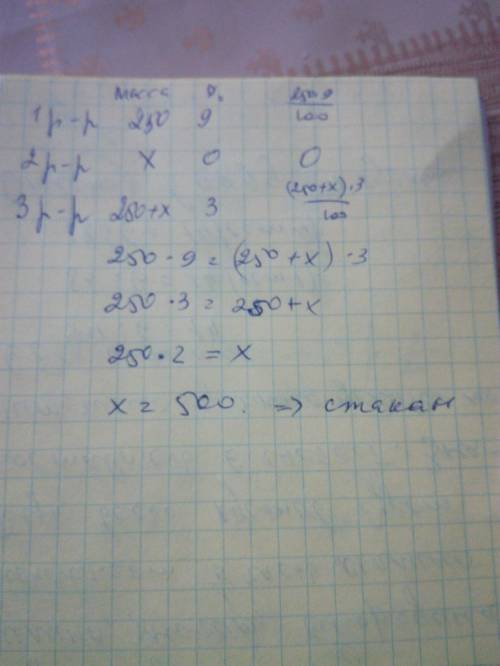 масса %
1 р-р 250 9 250·9/100
2 р-р х 0 0
3 р-р 250+х 3 (250+х)·3/100
250·9 = (250+х)·3
250·3 = 250+х
250·2 = х
х = 500. => стакан